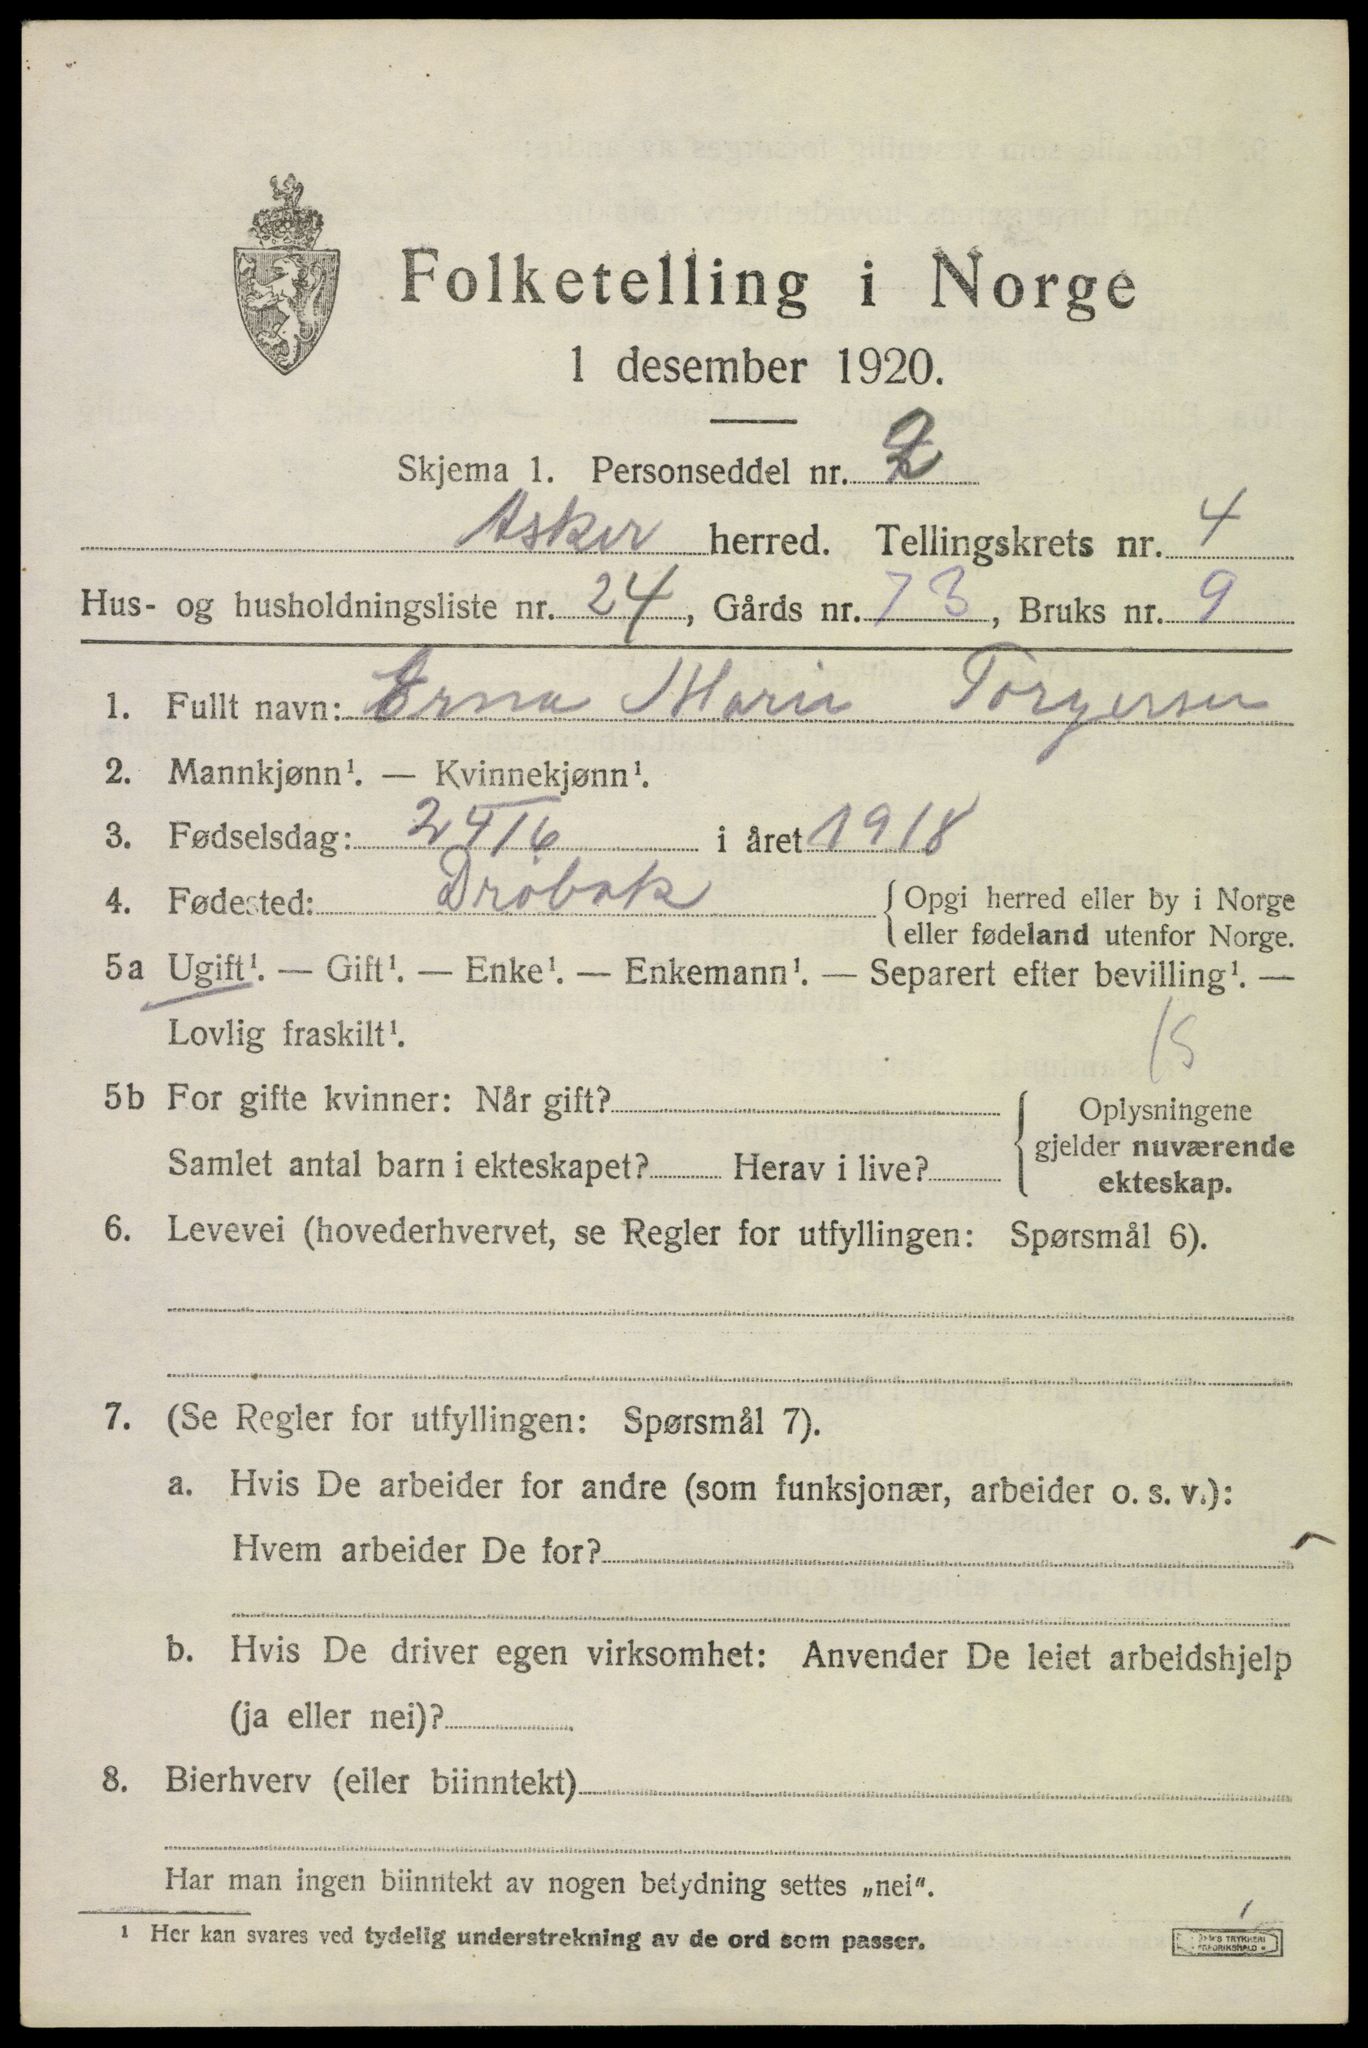 Folketelling i Norge
1 desember 1920.
Skjema 1. Personseddel nr. 2
Asker herred. Tellingskrets nr. 4
Hus- og husholdningsliste nr. 24, Gårds nr. 73, Bruks nr. 9
1. Fullt navn: Erna Marie Torgersen
2. Mannkjønn¹. — Kvinnekjønn¹.
3. Fødselsdag: 24/6 i året 1918
4. Fødested: Drøbak {Opgi herred eller by i Norge
eller fødeland utenfor Norge.
5a Ugift¹. — Gift¹. — Enke¹. — Enkemann¹. — Separert efter bevilling¹. —
Lovlig fraskilt¹.
15
5b For gifte kvinner: Når gift?
Samlet antal barn i ekteskapet? Herav i live?
{Oplysningene
gjelder nuværende
ekteskap.
6. Levevei (hovederhvervet, se Regler for utfyllingen: Spørsmål 6).
7. (Se Regler for utfyllingen: Spørsmål 7).
a. Hvis De arbeider for andre (som funksjonær, arbeider o. s. v.):
Hvem arbeider De for?
b. Hvis De driver egen virksomhet: Anvender De leiet arbeidshjelp
(ja eller nei)?
8. Bierhverv (eller biinntekt)
Har man ingen biinntekt av nogen betydning settes „nei“.
¹ Her kan svares ved tydelig understrekning av de ord som passer.
TRYKKERI
FREDRIKSHALD